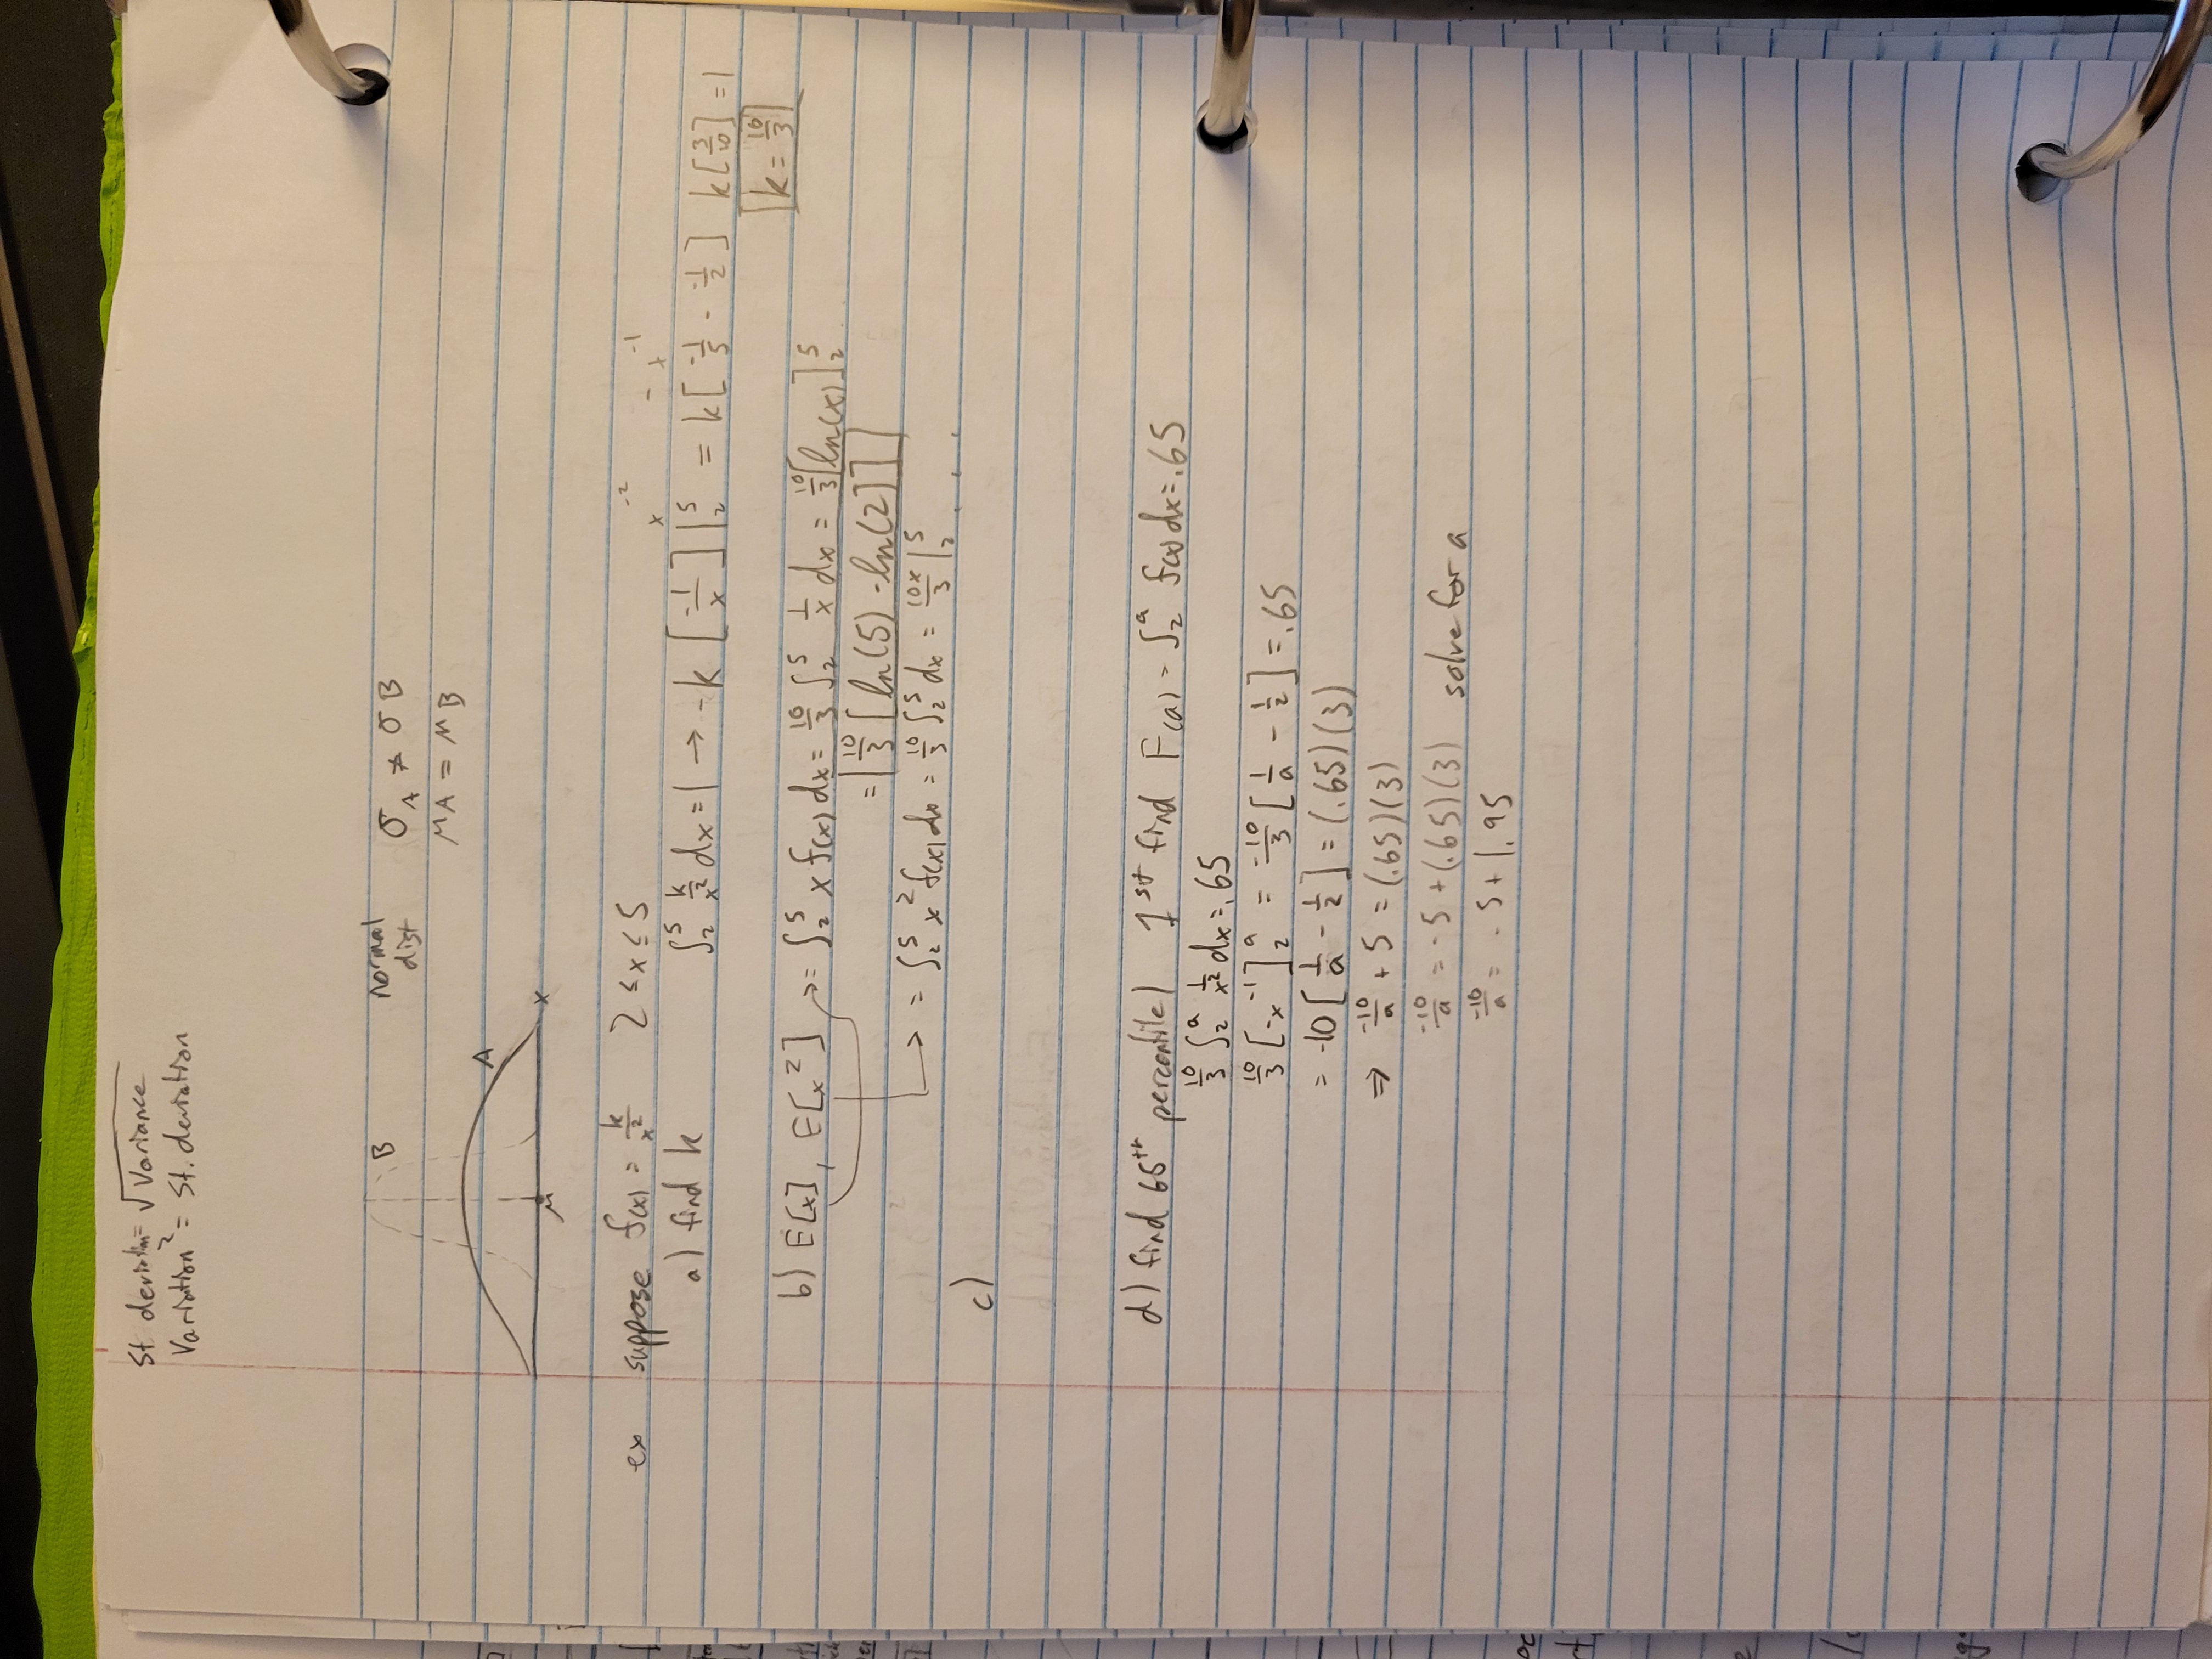 St deviation = √Variance
Variation² = St. deviation
B normal dist σ_A ≠ σB
μA = μB
A
μ x
ex suppose f(x) = k/x² 2 ≤ x ≤ 5
x⁻² -x⁻¹
a) find k ∫₂⁵ k/x² dx = 1 → -k [-1/x] |₂⁵ = k[-1/5 - -1/2] k[3/10] = 1
k = 10/3
b) E[x], E[x²] → = ∫₂⁵ x f(x) dx = 10/3 ∫₂⁵ 1/x dx = 10/3 [ln(x)]₂⁵
= 10/3 [ln(5) - ln(2)]
→ = ∫₂⁵ x² f(x) dx = 10/3 ∫₂⁵ dx = 10x/3 |₂⁵ . . .
c)
d) find 65th percentile) 1st find F(a) = ∫₂ᵃ f(x) dx = .65
10/3 ∫₂ᵃ 1/x² dx = .65
10/3 [-x⁻¹]₂ᵃ = -10/3 [1/a - 1/2] = .65
= -10 [1/a - 1/2] = (.65)(3)
⇒ -10/a + 5 = (.65)(3)
-10/a = -5 + (.65)(3) solve for a
-10/a = -5 + 1.95